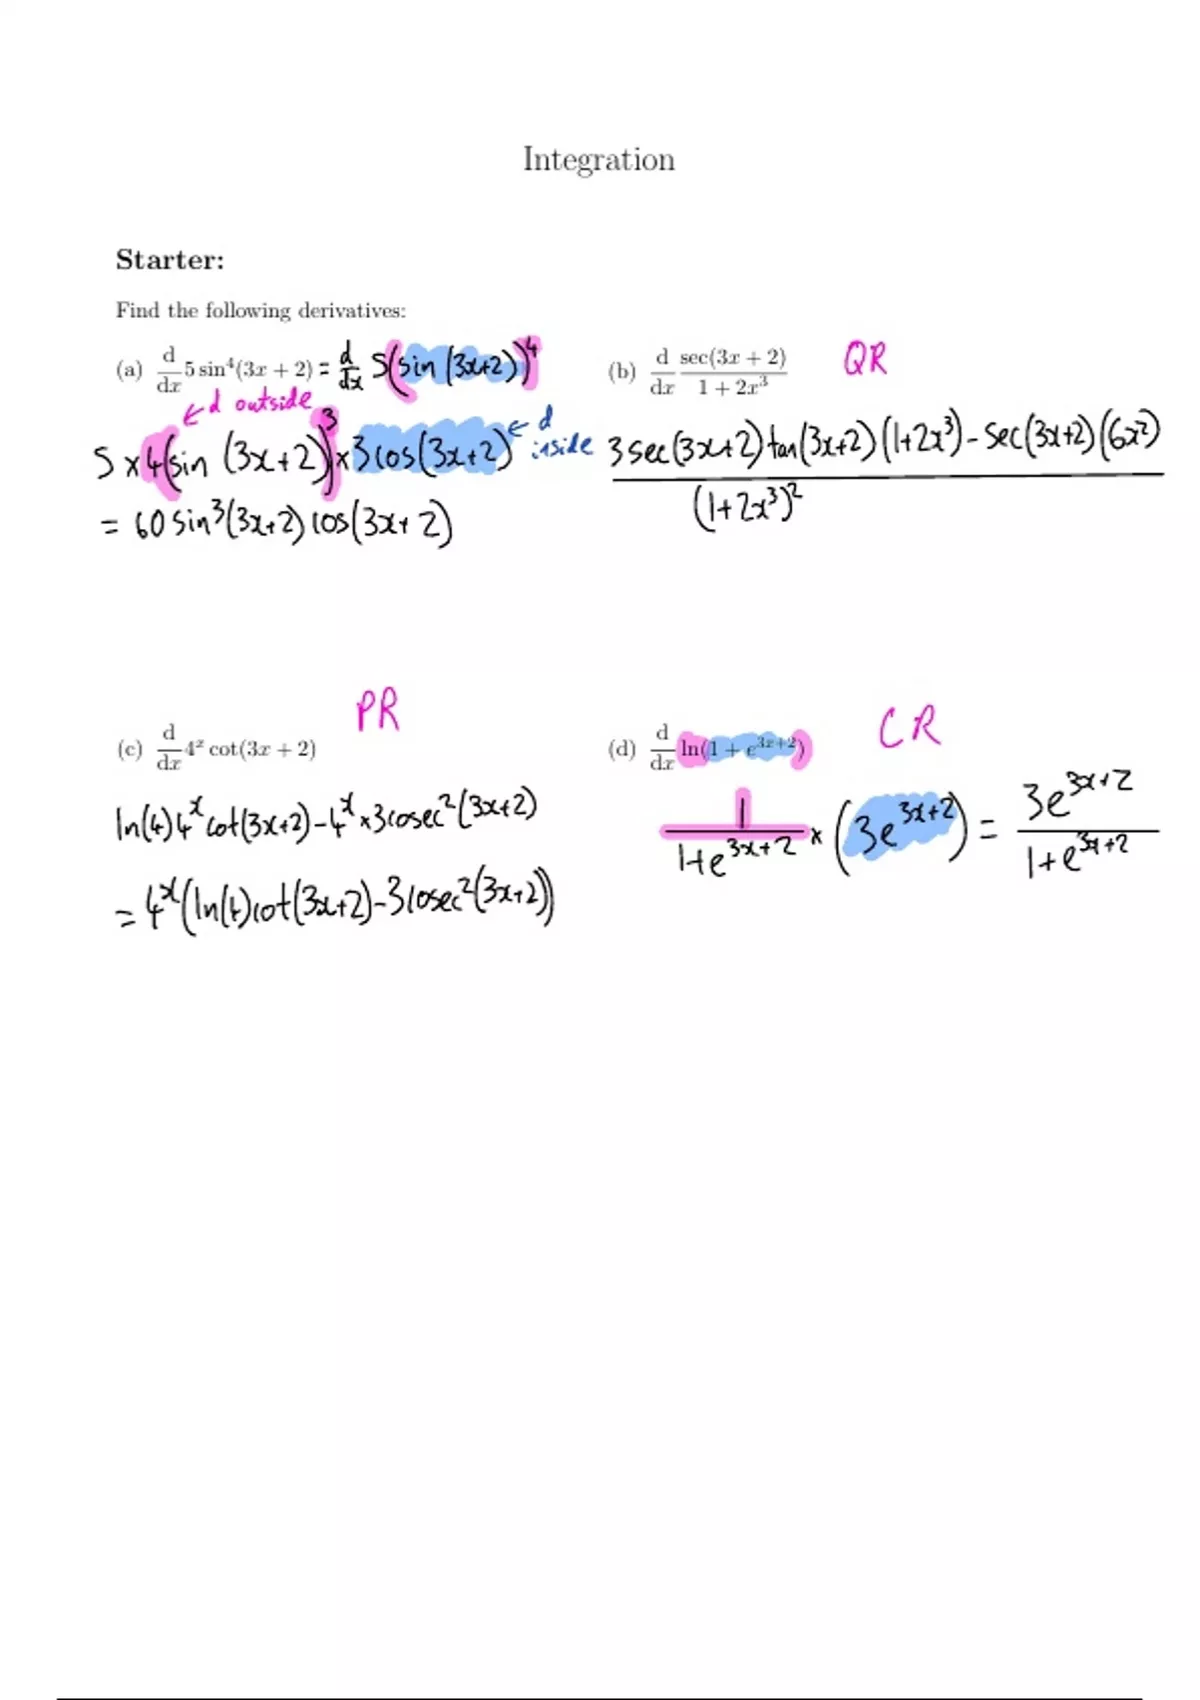 Integration
Starter:
Find the following derivatives:
(a) d/dx 5 sin⁴(3x + 2) = d/dx 5(sin (3x+2))⁴
← d outside
5 × 4(sin (3x+2))³ × 3cos(3x+2) ← d inside
= 60 sin³(3x+2) cos(3x+2)
(b) d/dx sec(3x + 2)/(1 + 2x³) QR
3 sec(3x+2) tan(3x+2) (1+2x³) - sec(3x+2) (6x²)
(1+2x³)²
(c) d/dx 4ˣ cot(3x + 2) PR
ln(4) 4ˣ cot(3x+2) - 4ˣ × 3cosec²(3x+2)
= 4ˣ(ln(4)cot(3x+2) - 3cosec²(3x+2))
(d) d/dx ln(1 + e³ˣ⁺²) CR
1/(1+e³ˣ⁺²) × (3e³ˣ⁺²) = 3e³ˣ⁺²/(1+e³ˣ⁺²)